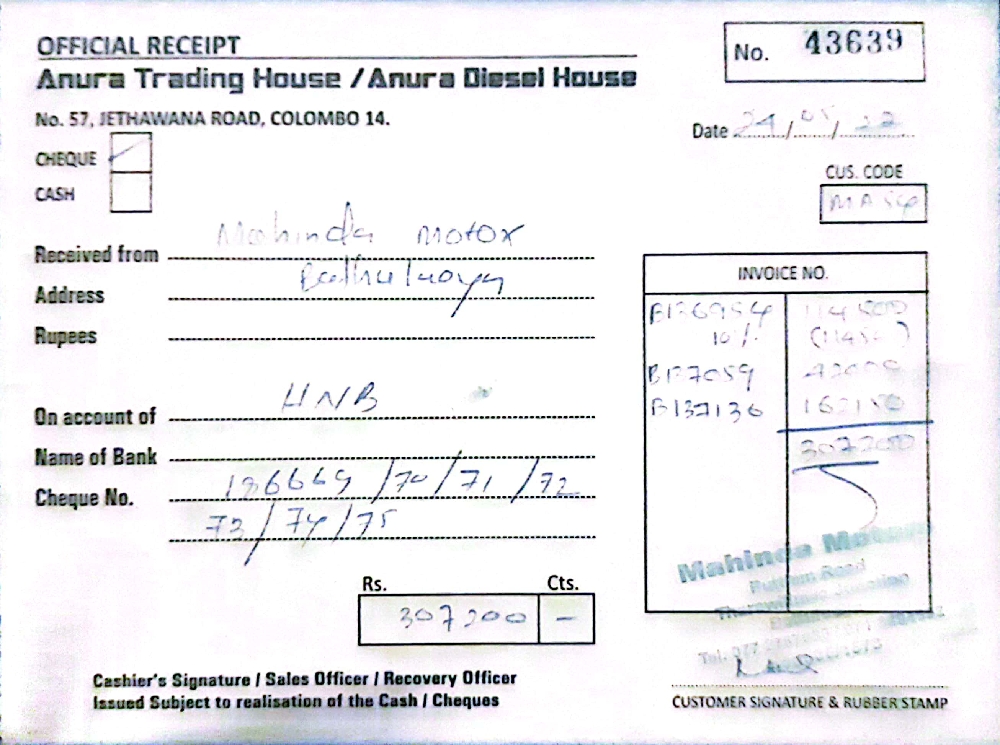 OFFICIAL RECEIPT
Anura Trading House / Anura Diesel House
No. 57, JETHAWANA ROAD, COLOMBO 14.
No. 43639
Date 24/05/22
CHEQUE
CASH
CUS. CODE
Received from Mahinda Motor
Address
Rupees
On account of HNB
Name of Bank
Cheque No. 186669/70/71/72
73/74/75
INVOICE NO.
B136954 114500
10%
B137059 42000
B137136 162150
307200
Rs. Cts.
307200 –
Mahinda
Cashier's Signature / Sales Officer / Recovery Officer
Issued Subject to realisation of the Cash / Cheques
CUSTOMER SIGNATURE & RUBBER STAMP